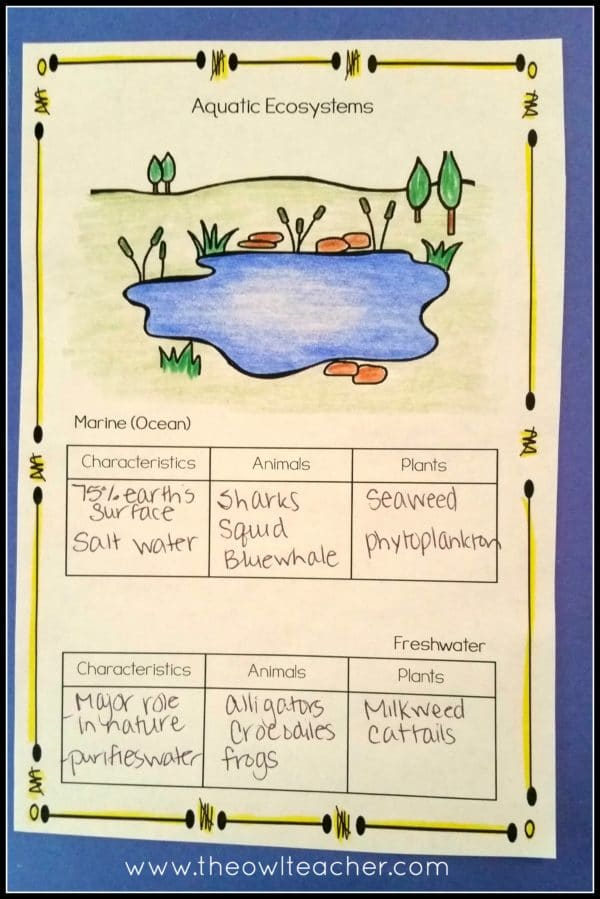 Aquatic Ecosystems
Marine (Ocean)
Characteristics Animals Plants
75% earth's
surface
Salt water
Sharks
Squid
Bluewhale
Seaweed
phytoplankton
Freshwater
Characteristics Animals Plants
Major role
-in nature
-purifieswater
alligators
Crocodiles
frogs
Milkweed
cattails
www.theowlteacher.com